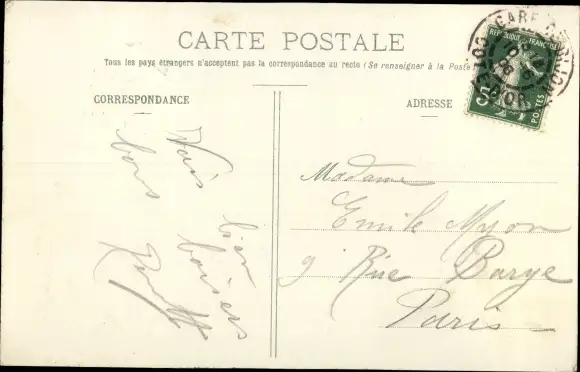 CARTE POSTALE
Tous les pays étrangers n'acceptent pas la correspondance au recto (Se renseigner à la Poste)
CORRESPONDANCE
ADRESSE
REPUBLIQUE FRANÇAISE
POSTES
GARE
COTE-D'OR
bien
bons baisers
Madame
Emile Myon
9 Rue Barye
Paris